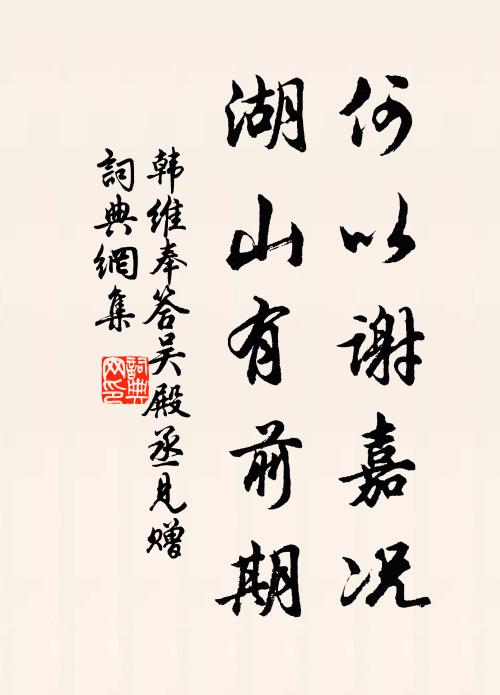 何以谢嘉况
湖山有前期
韩维奉答吴殿丞见赠
詞典網集
詞典
网印